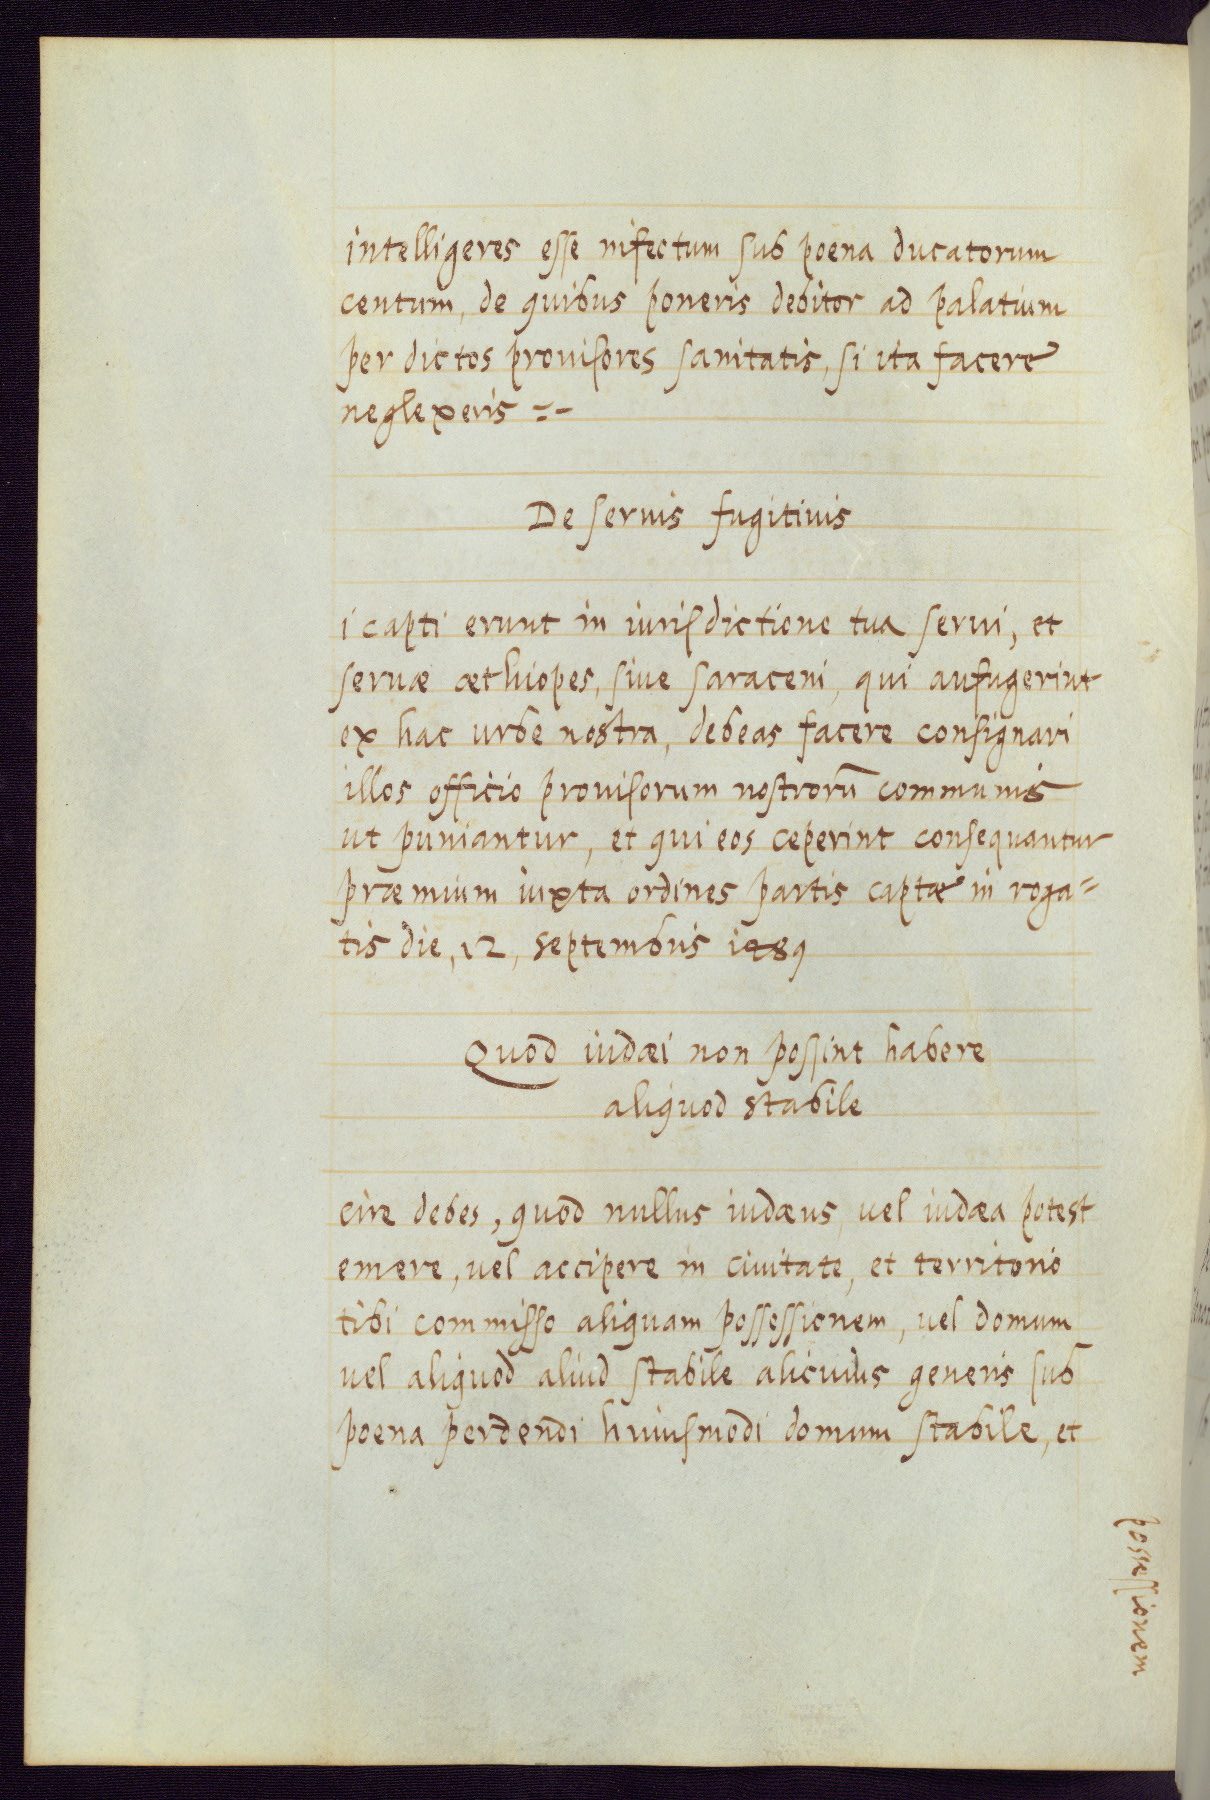 intelligeres esse infectum sub poena ducatorum
centum, de quibus poneris debitor ad palatium
per dictos prouisores sanitatis, si ita facere
neglexeris =-
De seruis fugitiuis
i capti erunt in iurisdictione tua serui, et
seruæ æthiopes, siue saraceni, qui aufugerint
ex hac urbe nostra, debeas facere consignari
illos officio prouisorum nostrorū communis
ut puniantur, et qui eos ceperint consequantur
præmium iuxta ordines partis captæ in roga=
tis die, 12, septembris 1489
Quod iudæi non possint habere
aliquod stabile
cire debes, quod nullus iudæus, vel iudæa potest
emere, uel accipere in ciuitate, et territorio
tibi commisso aliquam possessionem, uel domum
uel aliquod aliud stabile alicuius generis sub
poena perdendi huiusmodi domum stabile, et
possessionem